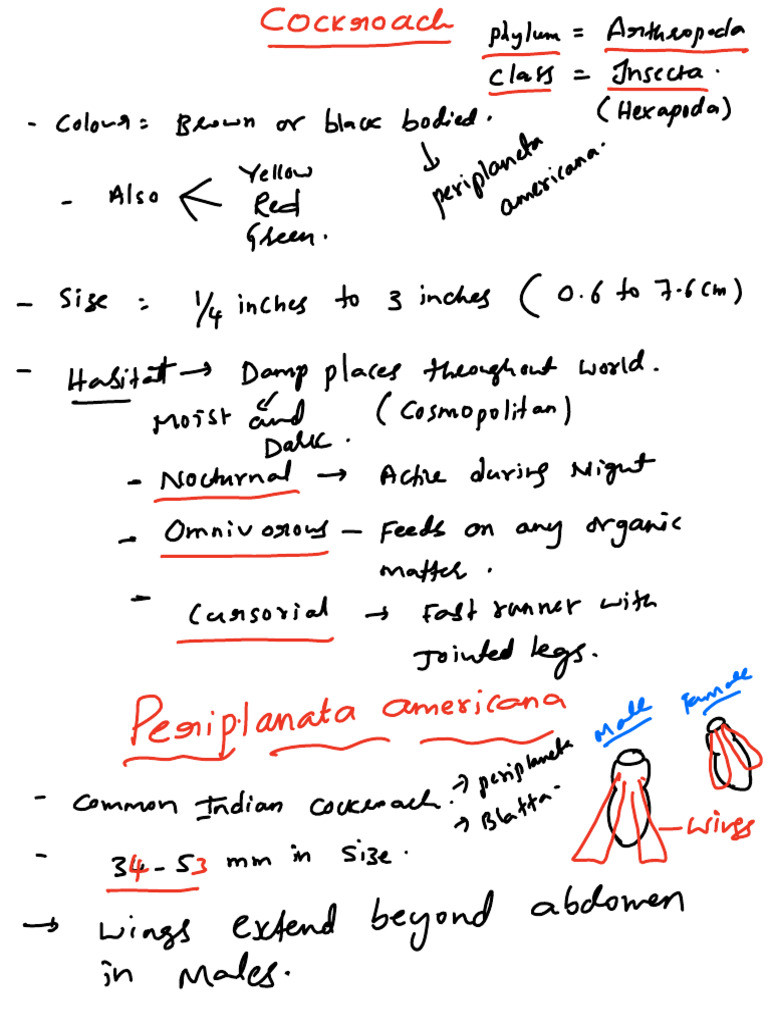 Cockroach
phylum = Arthropoda
class = Insecta.
(Hexapoda)
- Colour = Brown or black bodied.
periplaneta
americana.
- Also
Yellow
Red
Green.
- Size = 1/4 inches to 3 inches (0.6 to 7.6 cm)
- Habitat → Damp places throughout world.
Moist and (Cosmopolitan)
Dark.
- Nocturnal → Active during Night
- Omnivorous - Feeds on any organic
matter.
- Cursorial → Fast runner with
Jointed legs.
Periplanata americana
Male
Female
- Common Indian cockroach.
→ periplaneta
→ Blatta.
wings
- 34-53 mm in size.
→ wings extend beyond abdomen
in Males.